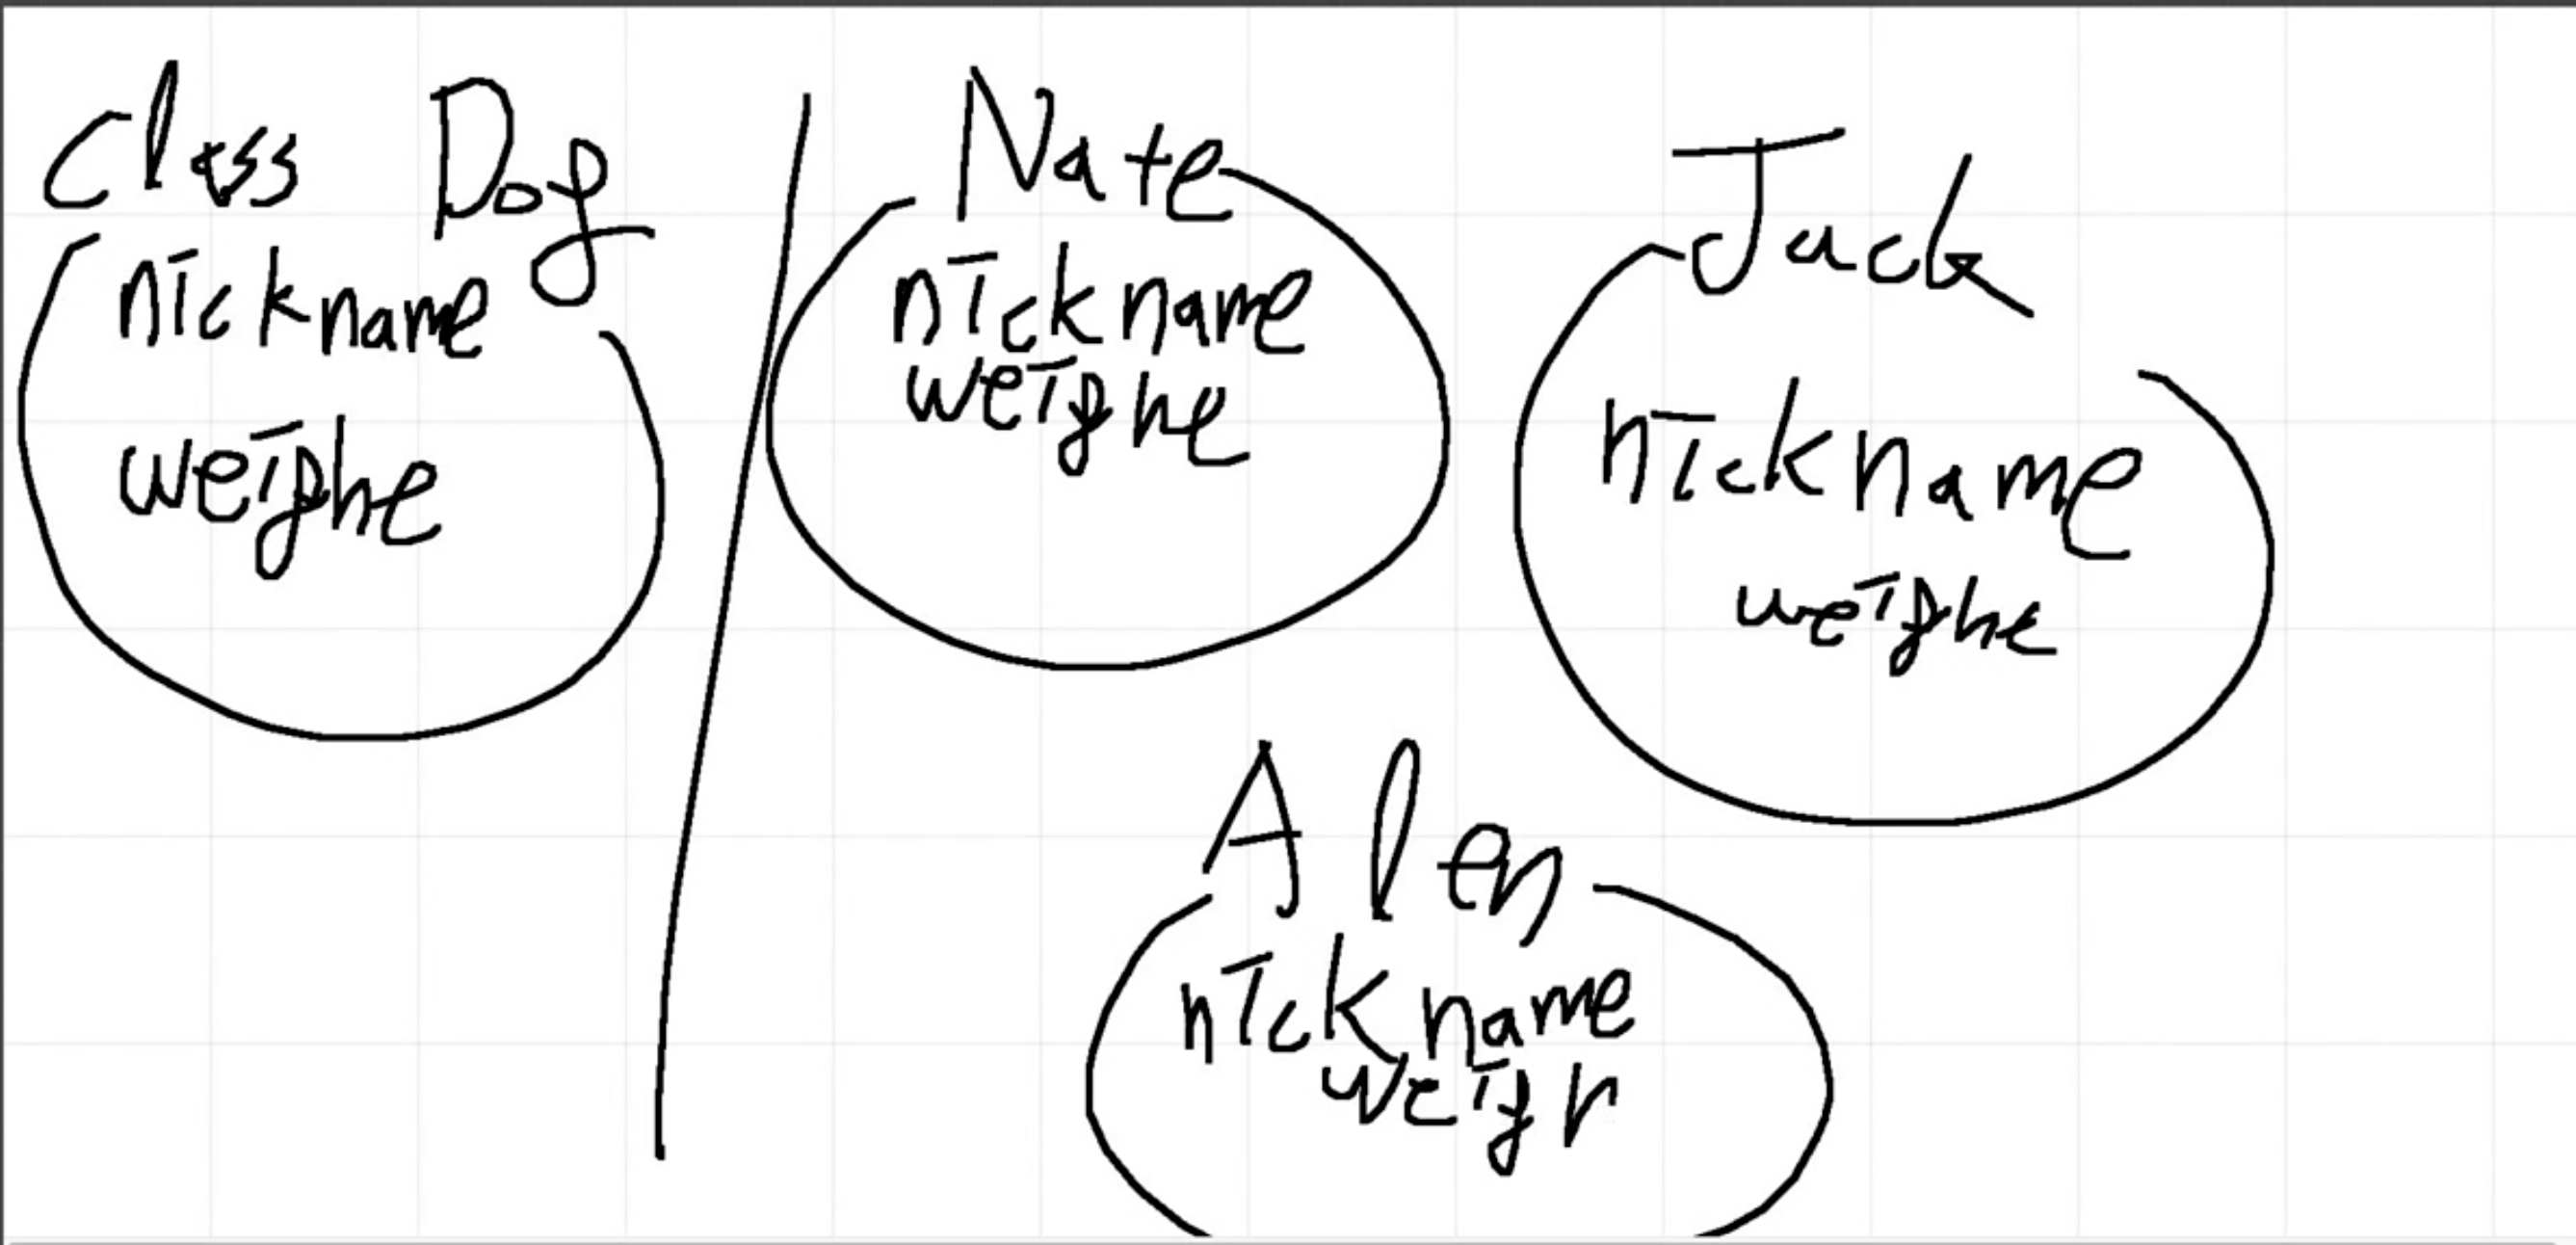 Class Dog
nickname
weighe
Nate
nickname
weighe
Jack
nickname
weighe
Alen
nickname
weigh